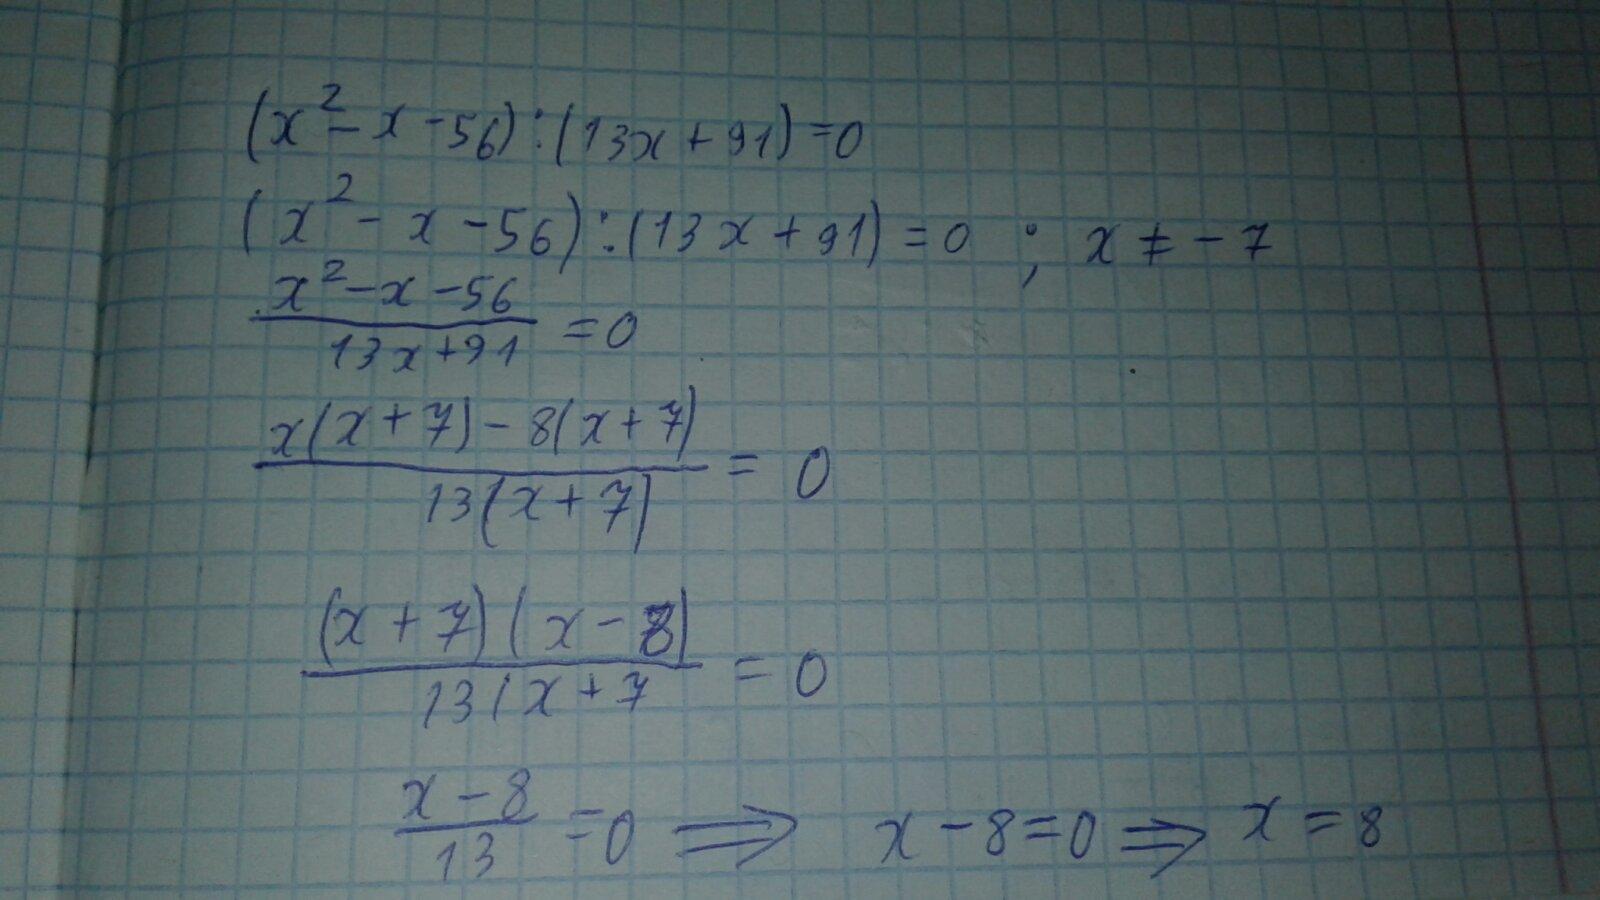 (x² - x - 56) : (13x + 91) = 0
(x² - x - 56) : (13x + 91) = 0 ; x ≠ - 7
x² - x - 56
13x + 91 = 0
x(x + 7) - 8(x + 7)
13(x + 7) = 0
(x + 7)(x - 8)
13(x + 7 = 0
x - 8
13 = 0 ⟹ x - 8 = 0 ⟹ x = 8